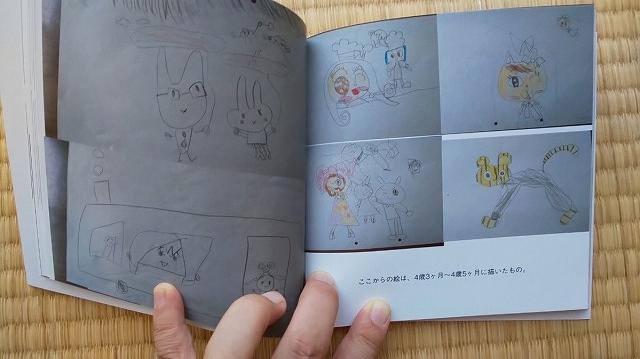 ここからの絵は、4歳3ヶ月〜4歳5ヶ月に描いたもの。